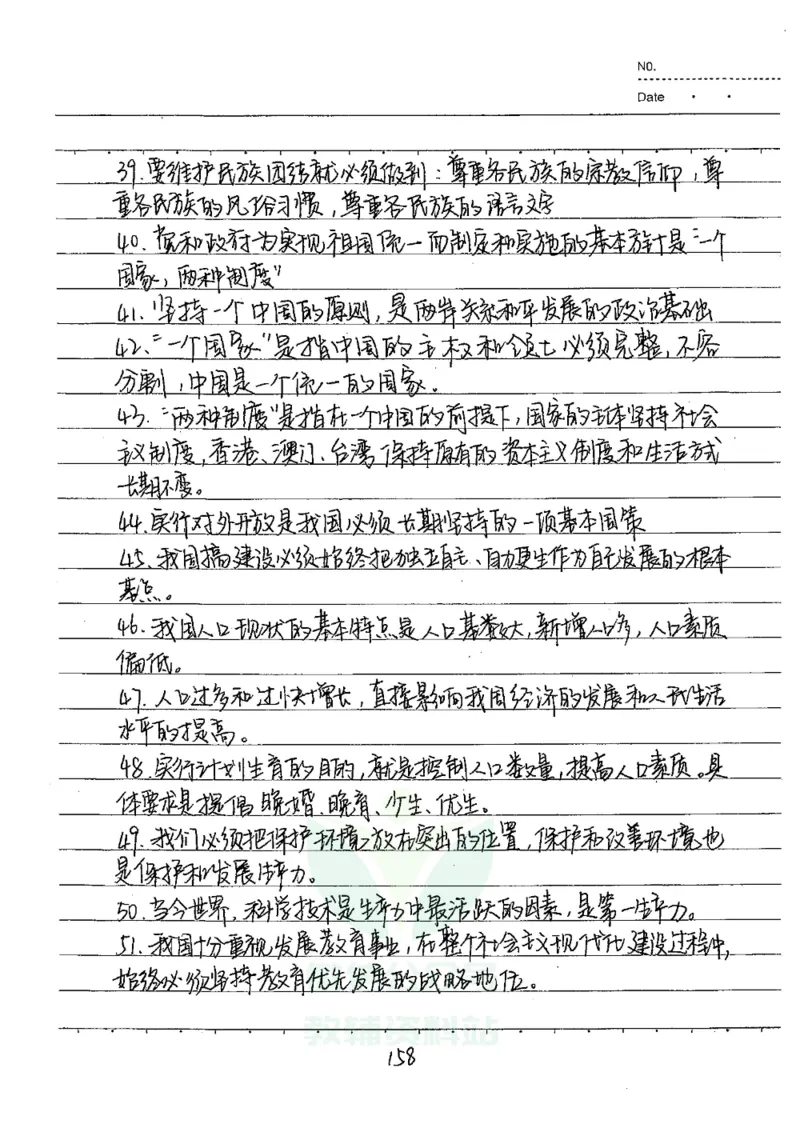 NO.
Date
39.要维护民族团结就必须做到：尊重各民族的宗教信仰，尊
重各民族的风俗习惯，尊重各民族的语言文字
40.党和政府为实现祖国统一而制定和实施的基本方针是"一个
国家，两种制度"
41.坚持一个中国的原则，是两岸关系和平发展的政治基础
42."一个国家"是指中国的主权和领土必须完整，不容
分割，中国是一个统一的国家。
43."两种制度"是指在一个中国的前提下，国家的主体坚持社会
主义制度，香港、澳门、台湾保持原有的资本主义制度和生活方式
长期不变。
44.实行对外开放是我国必须长期坚持的一项基本国策
45.我国搞建设必须始终把独立自主、自力更生作为自己发展的根本
基点。
46.我国人口现状的基本特点是人口基数大，新增人口多，人口素质
偏低。
47.人口过多和过快增长，直接影响我国经济的发展和人民生活
水平的提高。
48.实行计划生育的目的，就是控制人口数量，提高人口素质。具
体要求是提倡晚婚、晚育、少生、优生。
49.我们必须把保护环境放在突出的位置，保护和改善环境也
是保护和发展生产力。
50.当今世界，科学技术是生产力中最活跃的因素，是第一生产力。
51.我国十分重视发展教育事业，在整个社会主义现代化建设过程中，
始终必须坚持教育优先发展的战略地位。
教辅资料站
158